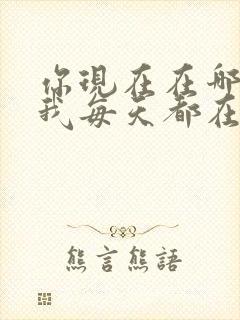 你現在在哪
我每天都在
熊言熊語